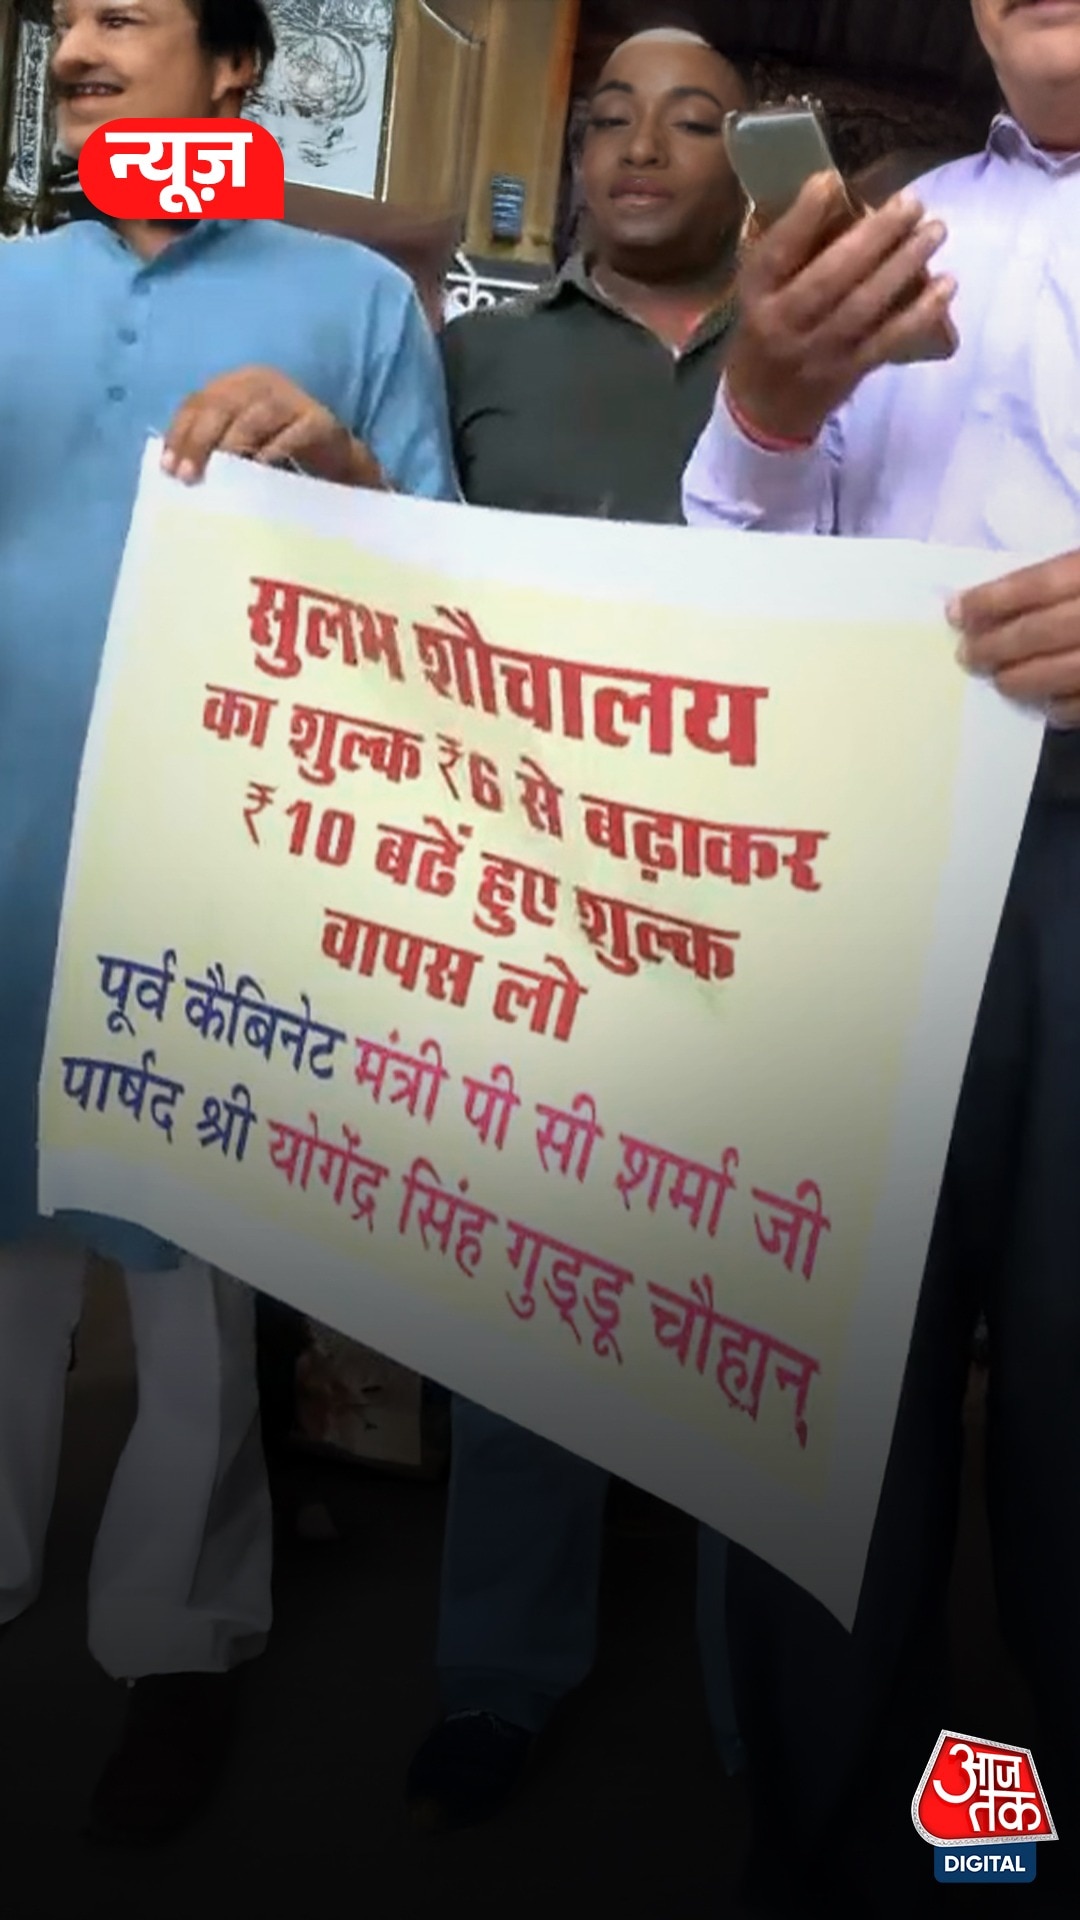 न्यूज़
के
सुलभ शौचालय
का शुल्क ₹6 से बढ़ाकर
₹10 बढें हुए शुल्क
वापस लो
पूर्व कैबिनेट मंत्री पी सी शर्मा जी
पार्षद श्री योगेंद्र सिंह गुड्डू चौहान्
आज
तक
DIGITAL